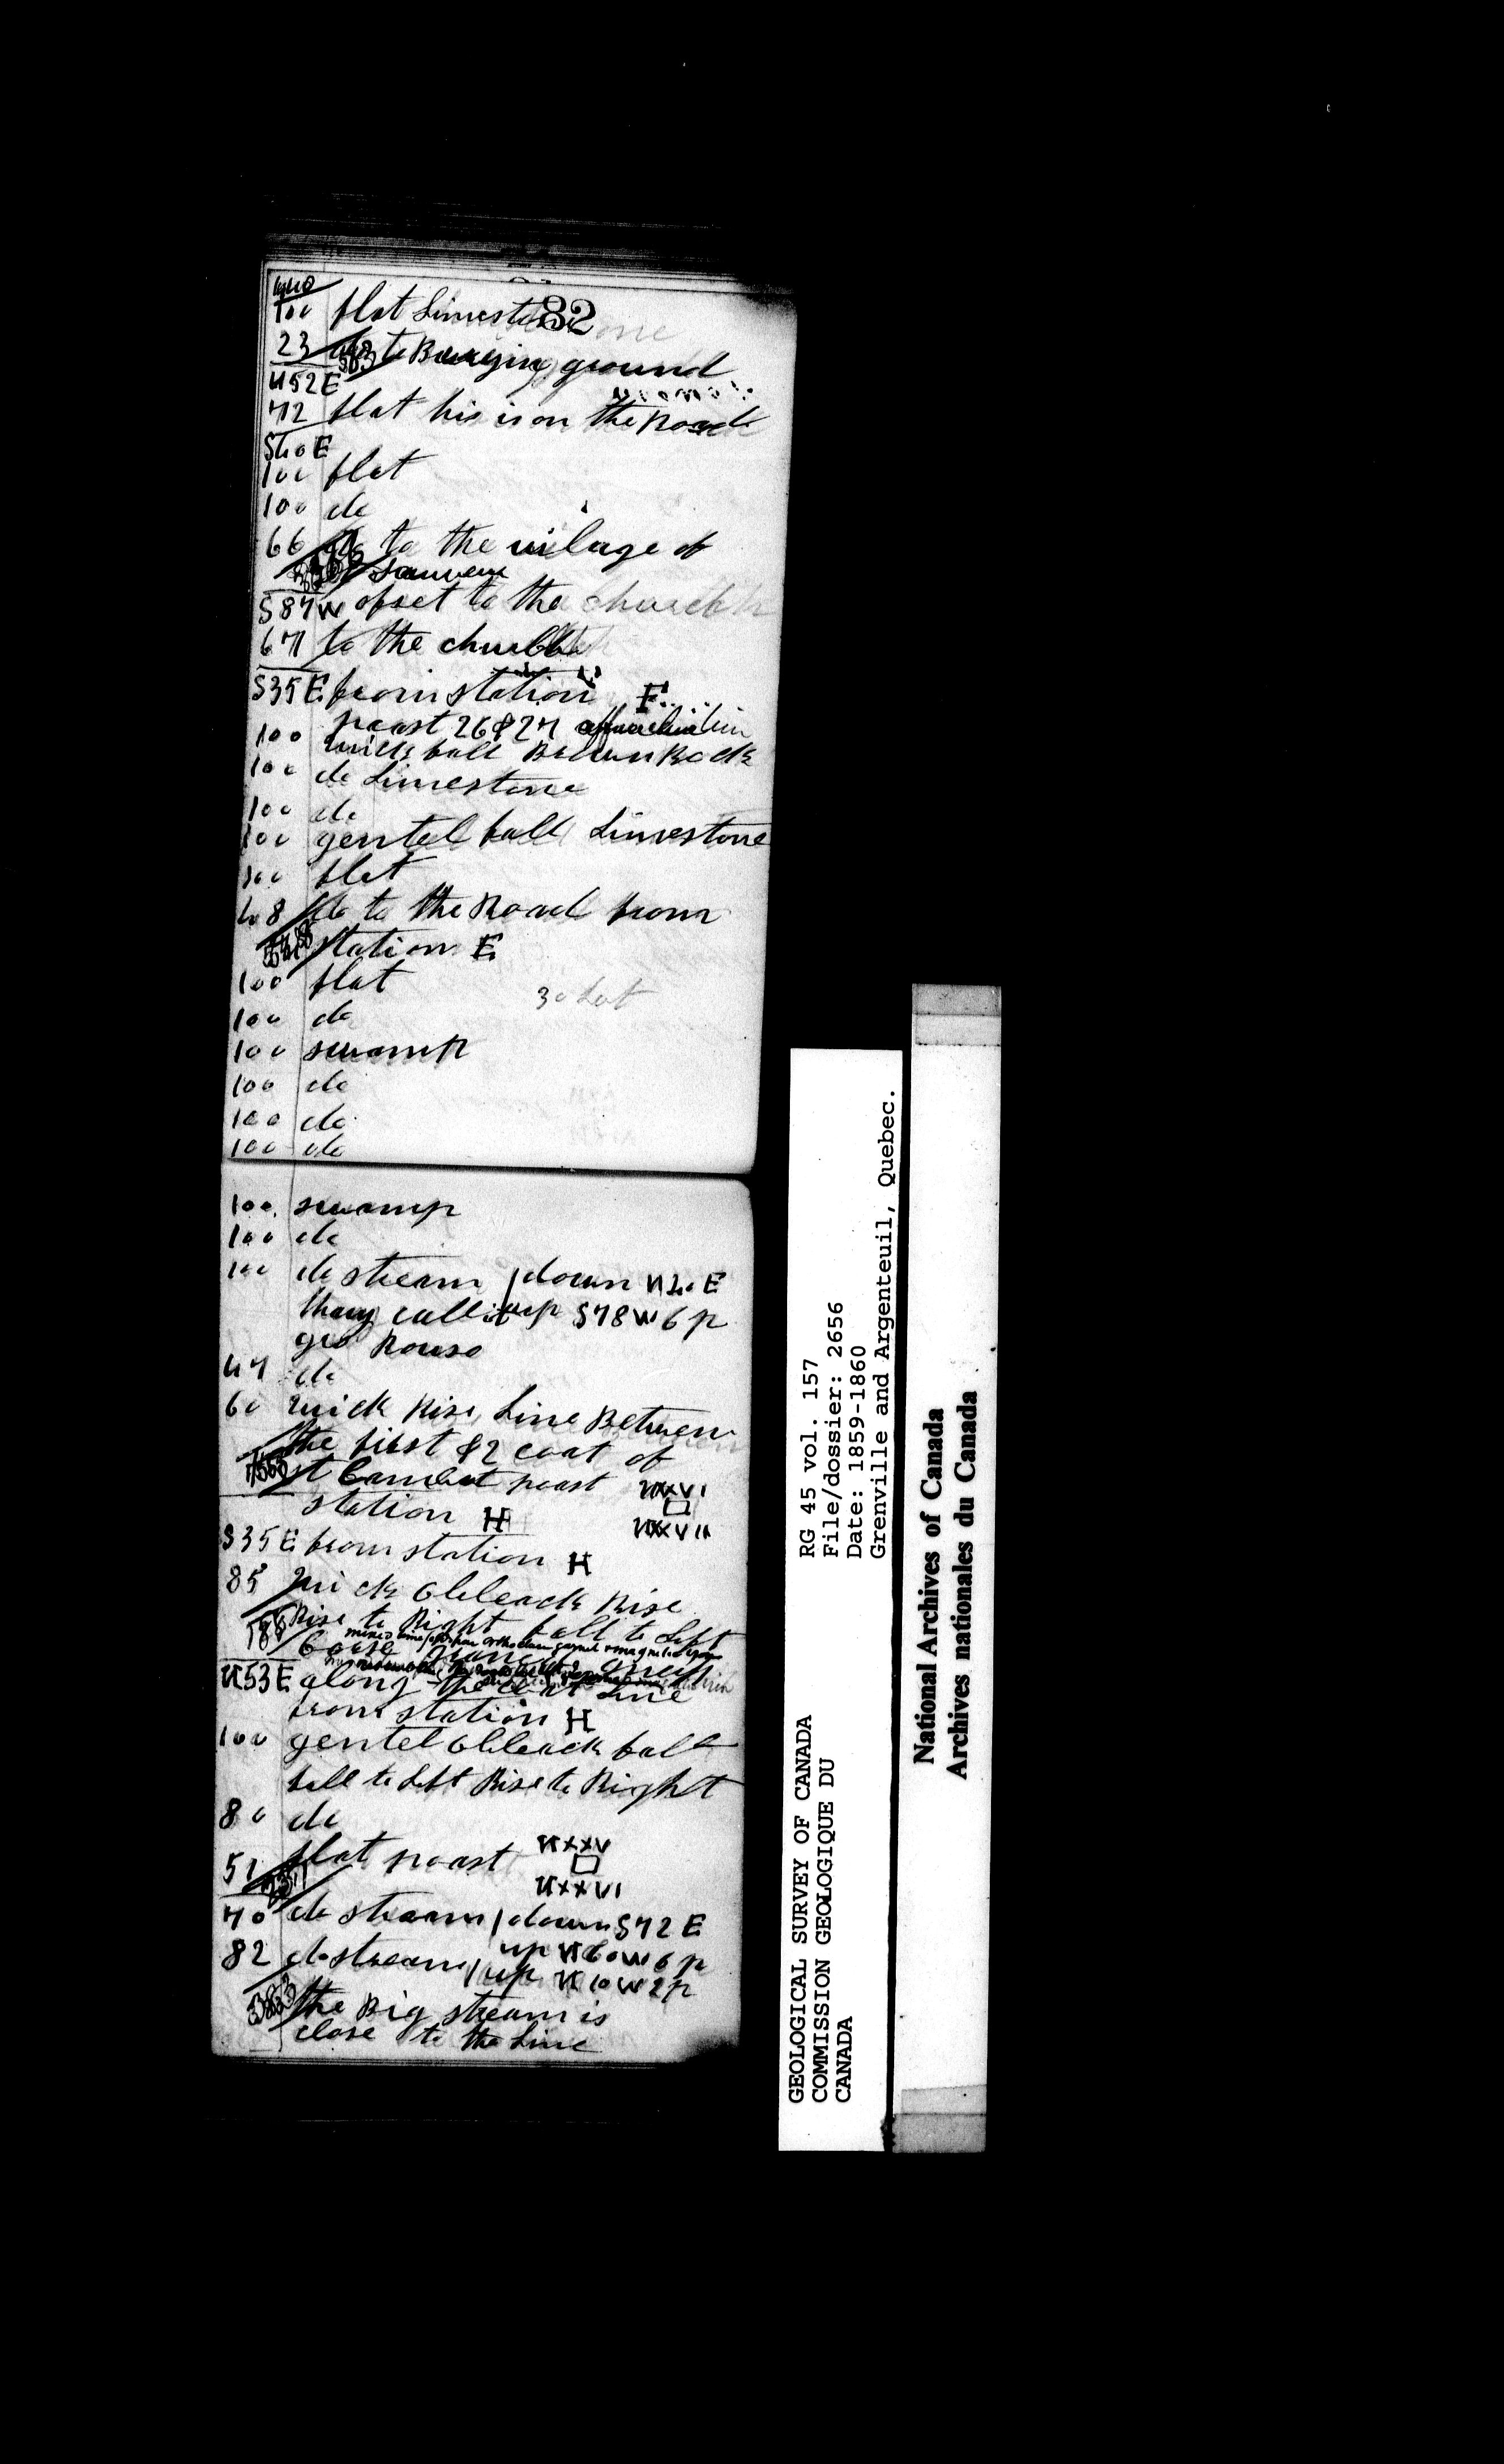 82
100 flat Limestone
23 do to Burying ground
N52E
72 flat his is on the Road
S40E
100 flat
100 do
66 do to the vilage of
S87W ofset to the church
67 to the church
S35E from station F
poast 26 & 27
100 quick fall Brown Rock
100 do Limestone
100 do
100 gentel fall Limestone
100 flat
48 do to the Road from
548 station E
100 flat
30 Lot
100 do
100 swamp
100 do
100 do
100 do
100 swamp
100 do
100 do stream / down N20E
thay call it up S78W 6 p
gro Rouso
47 do
60 quick Rise Line Between
the first & 2 coat of
st poast NXXVI
station H NXXVII
S35E from station H
85 quick obleack Rise
188 Rise to Right fall to Left
N53E along the coat Line
from station H
100 gentel obleack fall
fall to Left Rise to Right
80 do
51 flat poast NXXV
231 NXXVI
70 do stream / down S72E
up N60W 6 p
82 do stream / up N10W 2p
383 the Big stream is
close to the Line
GEOLOGICAL SURVEY OF CANADA
COMMISSION GEOLOGIQUE DU
CANADA
RG 45 vol. 157
File/dossier: 2656
Date: 1859-1860
Grenville and Argenteuil, Quebec.
National Archives of Canada
Archives nationales du Canada